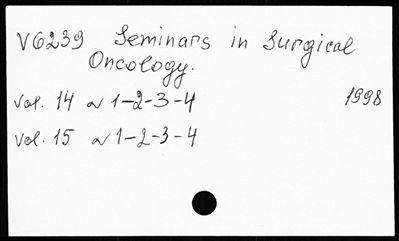 V6239 Seminars in Surgical
Oncology.
vol. 14 N 1-2-3-4 1998
vol. 15 N 1-2-3-4